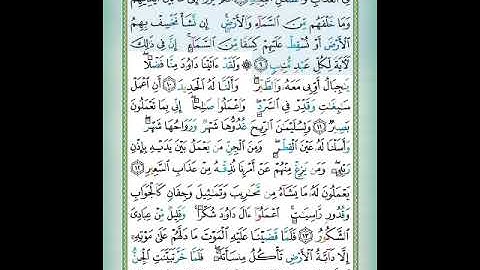 فِى ٱلْعَذَابِ وَٱلضَّلَٰلِ ٱلْبَعِيدِ
وَمَا خَلْفَهُم مِّنَ ٱلسَّمَآءِ وَٱلْأَرْضِ ۚ إِن نَّشَأْ نَخْسِفْ بِهِمُ
ٱلْأَرْضَ أَوْ نُسْقِطْ عَلَيْهِمْ كِسَفًا مِّنَ ٱلسَّمَآءِ ۚ إِنَّ فِى ذَٰلِكَ
لَءَايَةً لِّكُلِّ عَبْدٍ مُّنِيبٍ ۝٩ وَلَقَدْ ءَاتَيْنَا دَاوُۥدَ مِنَّا فَضْلًا ۖ
يَٰجِبَالُ أَوِّبِى مَعَهُۥ وَٱلطَّيْرَ ۖ وَأَلَنَّا لَهُ ٱلْحَدِيدَ ۝١٠ أَنِ ٱعْمَلْ
سَٰبِغَٰتٍ وَقَدِّرْ فِى ٱلسَّرْدِ ۖ وَٱعْمَلُوا۟ صَٰلِحًا ۖ إِنِّى بِمَا تَعْمَلُونَ
بَصِيرٌ ۝١١ وَلِسُلَيْمَٰنَ ٱلرِّيحَ غُدُوُّهَا شَهْرٌ وَرَوَاحُهَا شَهْرٌ ۖ
وَأَسَلْنَا لَهُۥ عَيْنَ ٱلْقِطْرِ ۖ وَمِنَ ٱلْجِنِّ مَن يَعْمَلُ بَيْنَ يَدَيْهِ بِإِذْنِ
رَبِّهِۦ ۖ وَمَن يَزِغْ مِنْهُمْ عَنْ أَمْرِنَا نُذِقْهُ مِنْ عَذَابِ ٱلسَّعِيرِ ۝١٢
يَعْمَلُونَ لَهُۥ مَا يَشَآءُ مِن مَّحَٰرِيبَ وَتَمَٰثِيلَ وَجِفَانٍ كَٱلْجَوَابِ
وَقُدُورٍ رَّاسِيَٰتٍ ۚ ٱعْمَلُوٓا۟ ءَالَ دَاوُۥدَ شُكْرًا ۚ وَقَلِيلٌ مِّنْ عِبَادِىَ
ٱلشَّكُورُ ۝١٣ فَلَمَّا قَضَيْنَا عَلَيْهِ ٱلْمَوْتَ مَا دَلَّهُمْ عَلَىٰ مَوْتِهِۦٓ
إِلَّا دَآبَّةُ ٱلْأَرْضِ تَأْكُلُ مِنسَأَتَهُۥ ۖ فَلَمَّا خَرَّ تَبَيَّنَتِ ٱلْجِنُّ